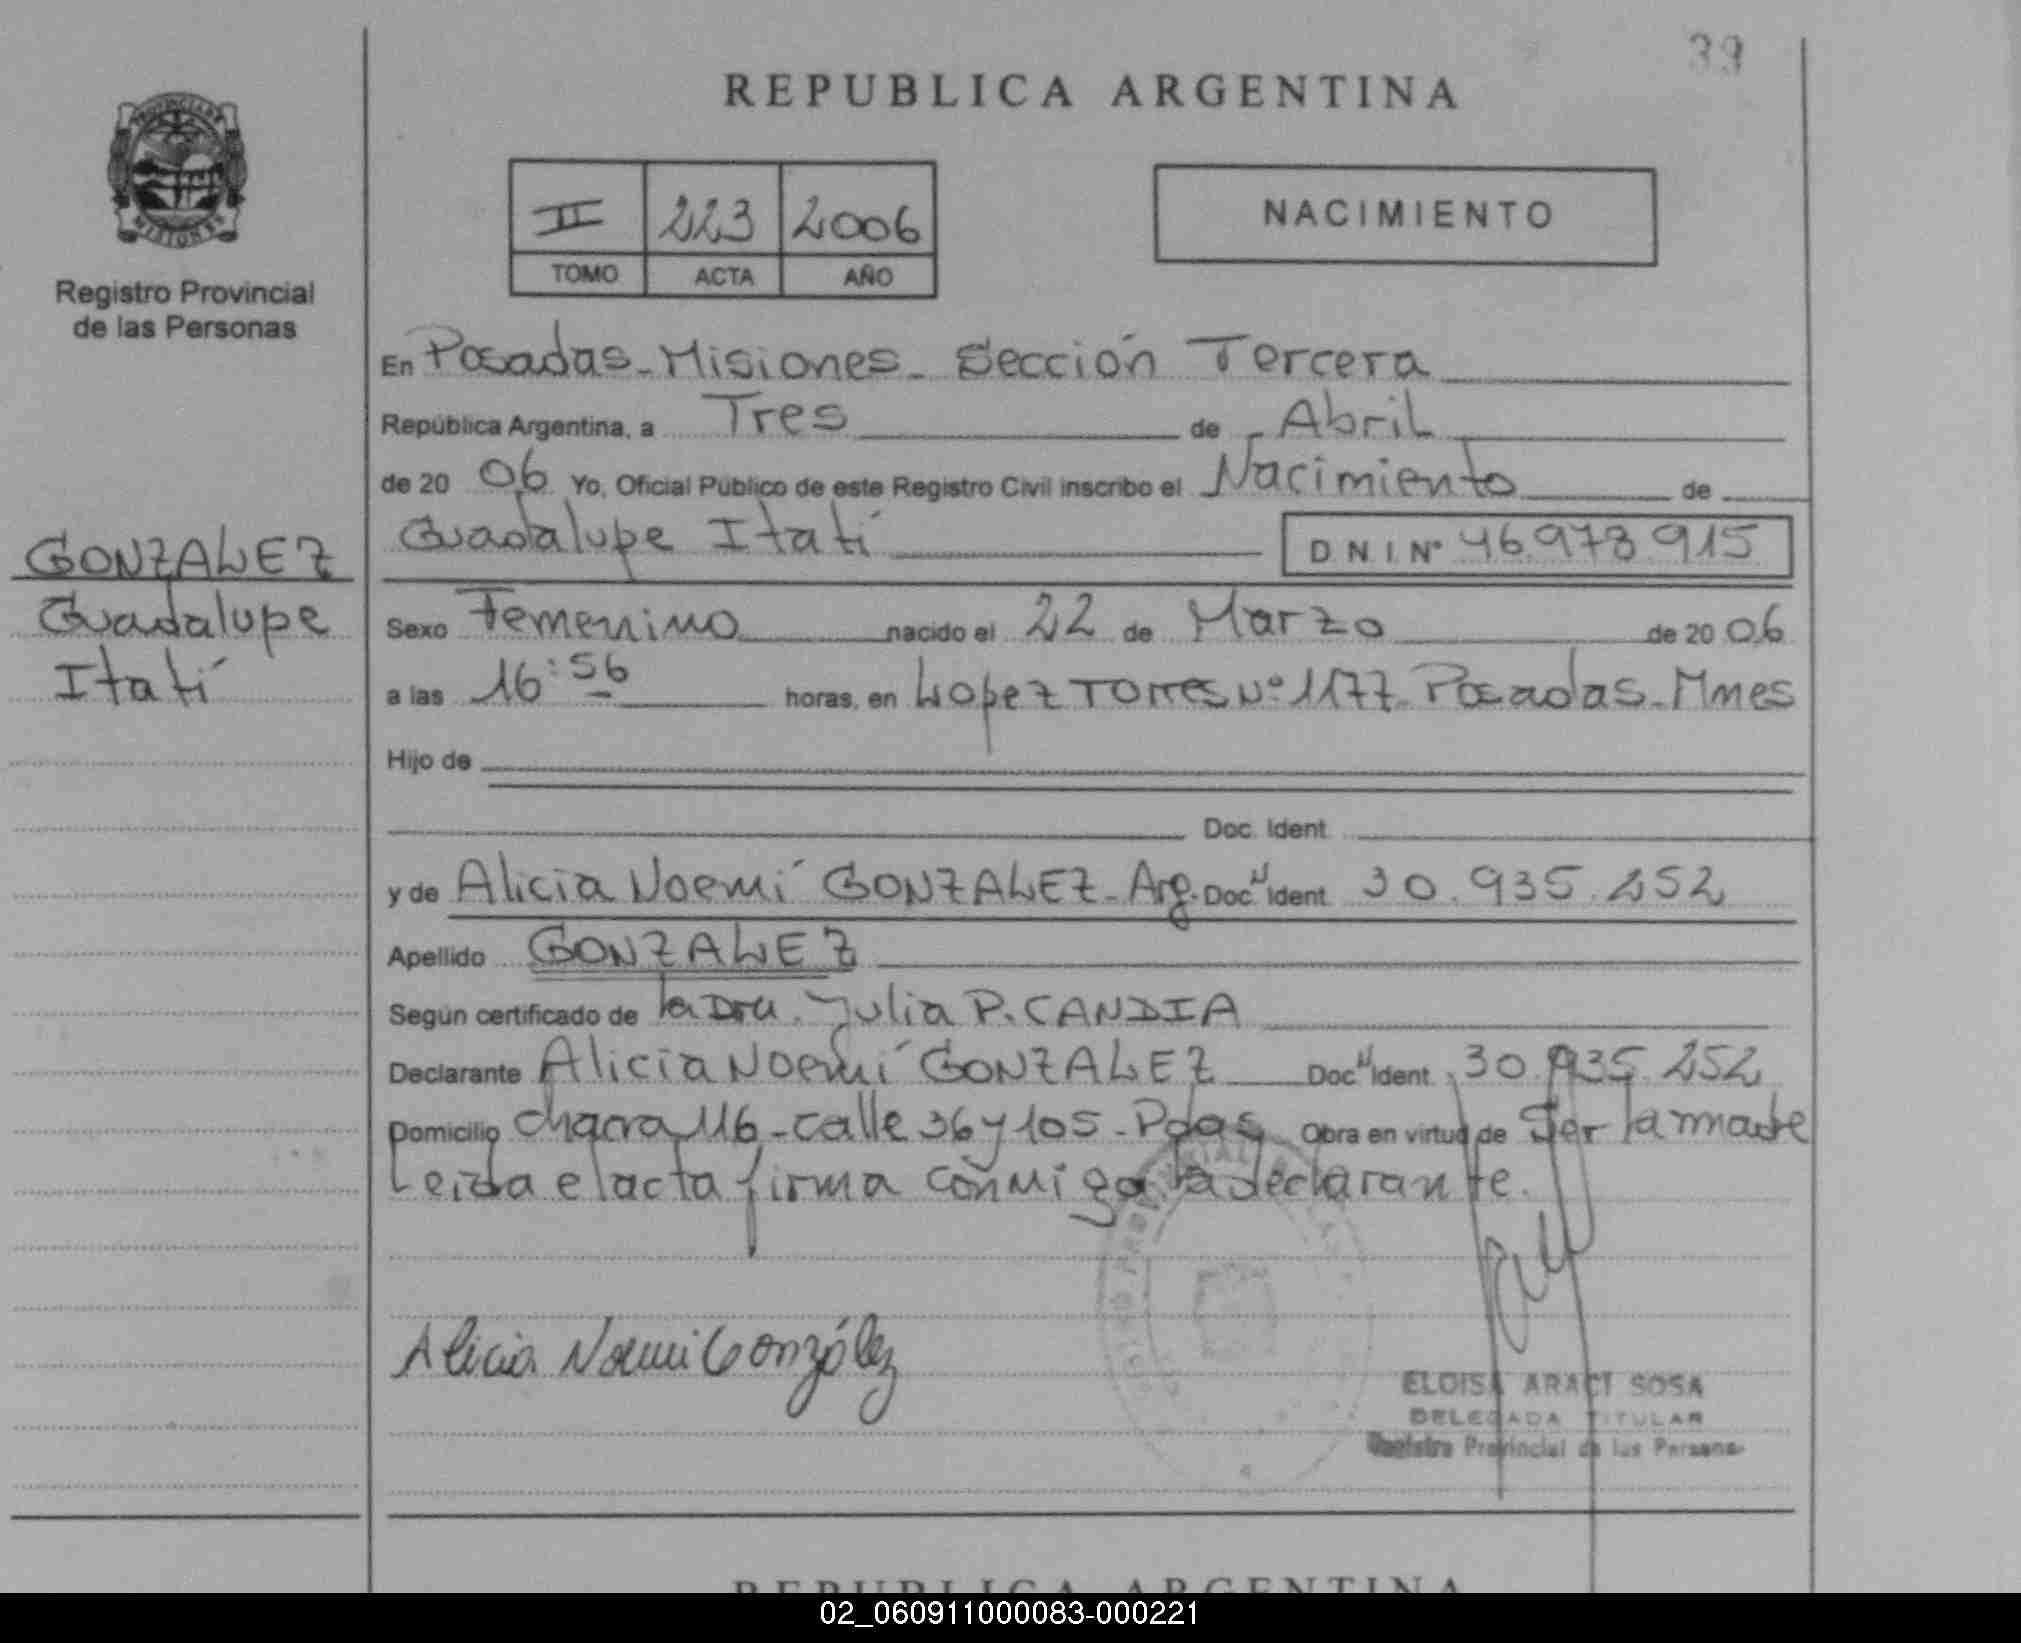 39
REPUBLICA ARGENTINA
PROVINCIA DE
MISIONES
Registro Provincial
de las Personas
II 223 2006
TOMO ACTA AÑO
NACIMIENTO
En Posadas - Misiones - Sección Tercera
República Argentina, a Tres de Abril
de 20 06 Yo, Oficial Público de este Registro Civil inscribo el Nacimiento de
Guadalupe Itatí D.N.I. Nº 46.973.915
GONZALEZ
Guadalupe
Itatí
Sexo Femenino nacido el 22 de Marzo de 20 06
a las 16:56 horas, en Lopez Torres Nº 1177 - Posadas - Mnes
Hijo de
Doc. Ident.
y de Alicia Noemí GONZALEZ - Arg. Doc. N Ident. 30.935.252
Apellido GONZALEZ
Según certificado de la Dra. Julia P. CANDIA
Declarante Alicia Noemí GONZALEZ Doc. N Ident. 30.935.252
Domicilio chacra 116 - calle 36 y 105 - Pdas Obra en virtud de Ser la madre
Leida el acta firma conmigo la declarante.
Alicia Noemi González
ELOISA ARACI SOSA
DELEGADA TITULAR
Registro Provincial de las Personas
REPUBLICA ARGENTINA
02_060911000083-000221